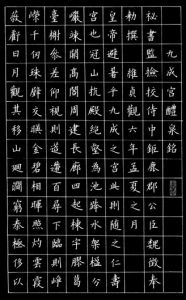 九成宮醴泉銘
秘書監檢校侍中鉅鹿郡公臣魏徵奉
勅撰維貞觀六年孟夏之月
皇帝避暑乎九成之宮此則隨之仁壽
宮也冠山抗殿絕壑為池跨水架楹分
巖竦闕高閣周建長廊四起棟宇膠葛
臺榭參差仰視則迢遰百尋下臨則崢
嶸千仞珠璧交映金碧相暉照灼雲霞
蔽虧日月觀其移山迴澗窮泰極侈以